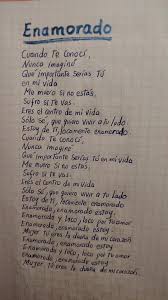 Enamorado
Cuando Te Conocí,
Nunca imaginé
Que importante serías Tú
en mi vida
Me muero si no estás,
Sufro si Te vas.
Eres el centro de mi vida
Sólo sé, que quiero vivir a tu lado
Estoy de Ti, locamente enamorado
Cuando Te conocí,
Nunca imaginé
Que importante serías Tú en mi vida
Me muero si no estás,
Sufro si Te vas
Eres el centro de mi vida
Sólo sé, que quiero vivir a tu lado
Estoy de Ti, locamente enamorado
Enamorado, enamorado estoy
Enamorado y loco, loco por tu amor
Enamorado, enamorado estoy
Mujer Tú eres la dueña de mi corazón
Enamorado, enamorado estoy
Enamorado y loco, loco por tu amor
Enamorado, enamorado estoy
Mujer Tú eres la dueña de mi corazón.